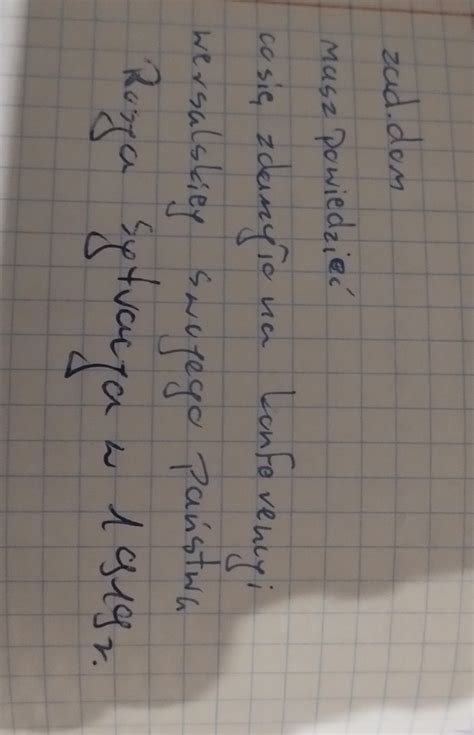 zad.dom
masz powiedzieć
co się zdarzyło na konferencyi
wersalskiej swojego Państwa
Rosja sytuacja w 1919 r.